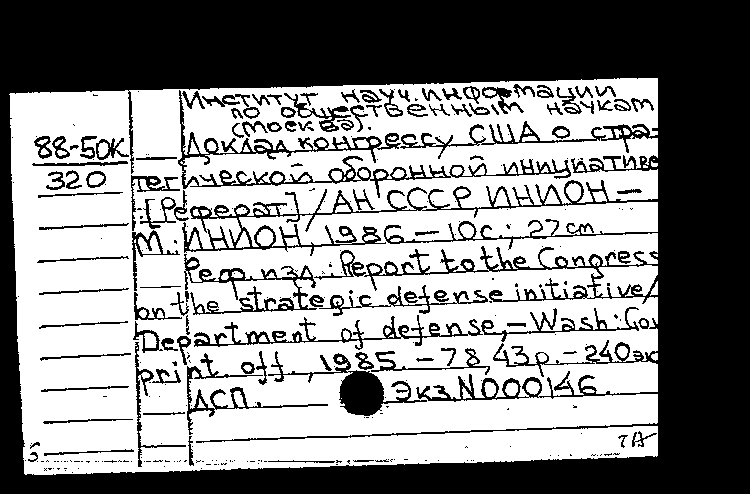 Институт науч. информации
по общественным наукам
(Москва).
88-50К
Доклад конгрессу США о стра-
320
тегической оборонной инициативе
: [Реферат] / АН СССР, ИНИОН. –
М.: ИНИОН, 1986. – 10с.; 27 см.
Реф. изд.: Report to the Congress
on the strategic defense initiative /
Department of defense, – Wash.: Gov
print. off., 1985. – 78, 43 p. – 240 эк
ДСП. Экз. N000146.